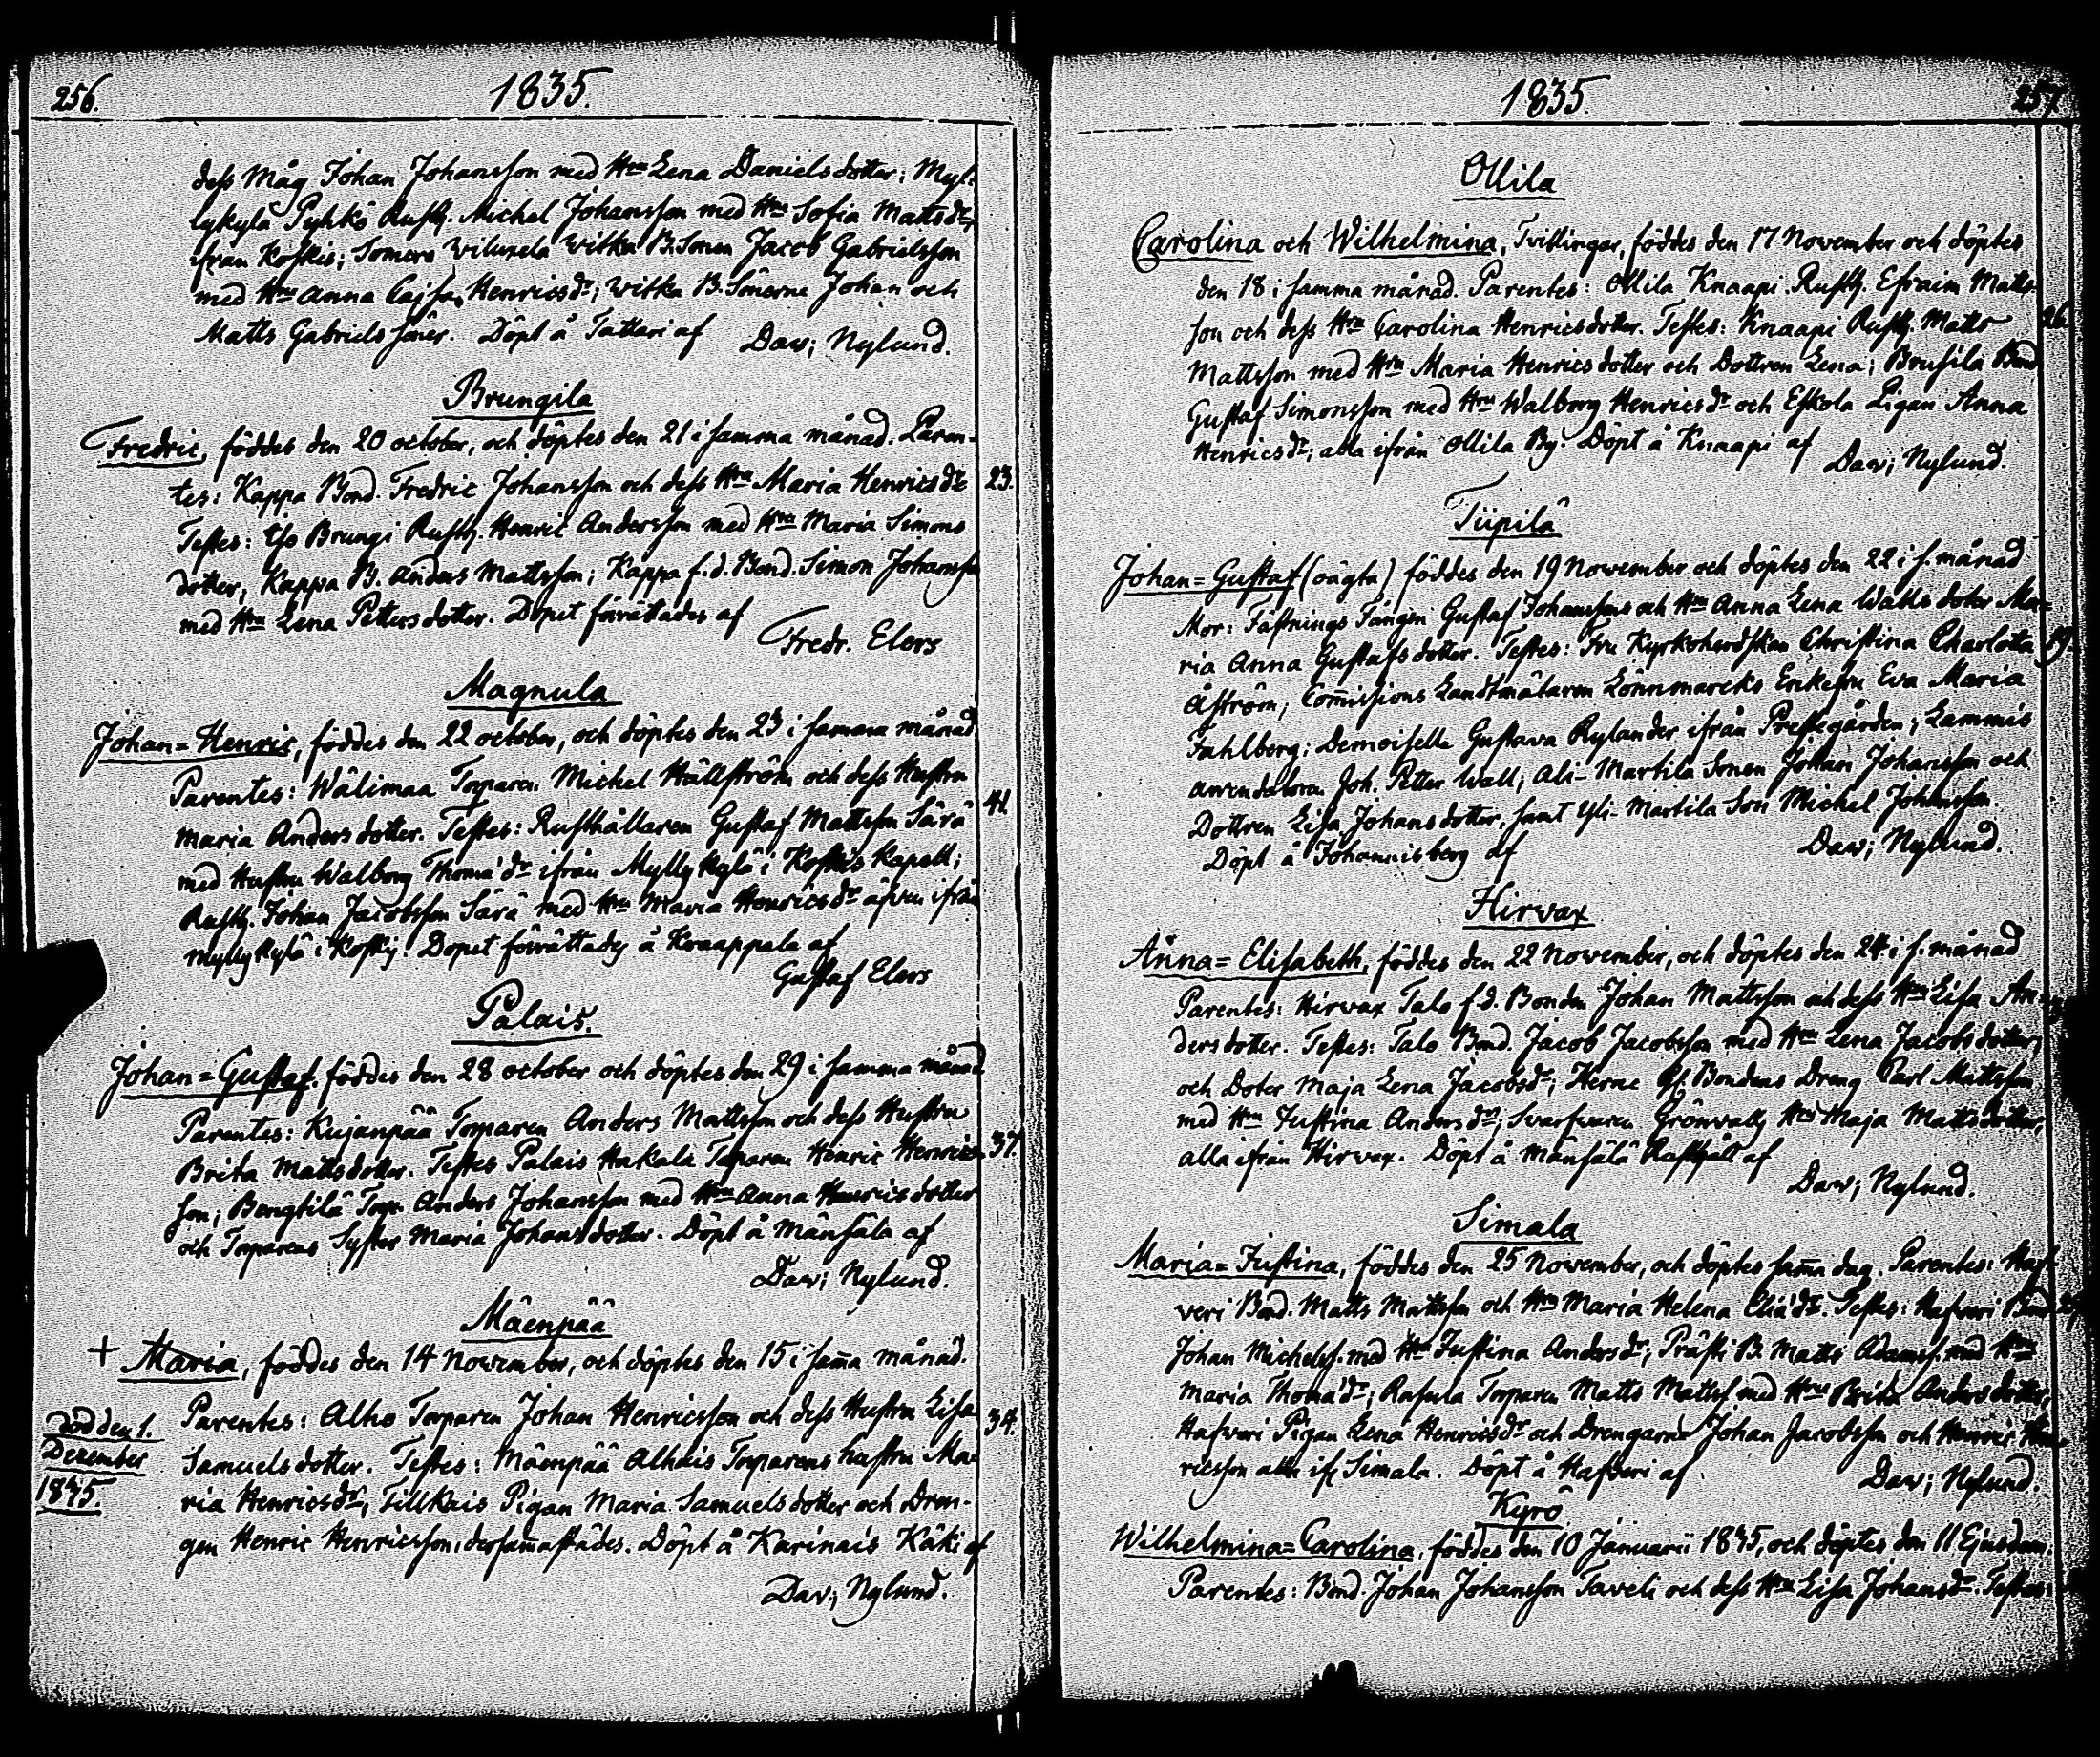 256.
1835.
dess Måg Johan Johansson med Hru Lena Danielsdotter; Myl-
lykylä Pyhkö Rusth. Michel Johansson med Hru Sofia Mattsdr
ifrån Koskis; Somero Wiluxela Witka B. Sonen Jacob Gabrielsson
med Hru Anna Cajsa Henricsdr; Witka B. Sönerne Johan och
Matts Gabriels söner. Döpt å Tattari af Dav; Nylund.
Brungila
Fredric, föddes den 20 october, och döptes den 21 i samma månad. Paren-
tes: Kappa Bond. Fredric Johansson och dess Hru Maria Henricsdr
23.
Testes: Brungi Rusth. Henric Andersson med Hru Maria Simons
dotter, Kappa B. Anders Mattsson; Kappa f.d. Bond. Simon Johansson
med Hru Lena Pettersdotter. Dopet förrättades af
Fredr. Elers
Magnula
Johan=Henric, föddes den 22 october, och döptes den 23 i samma månad
Parentes: Wälimaa Torparen Michel Hällström och dess Hustru
41
Maria Andersdotter. Testes: Rusthållaren Gustaf Mattsson Särä
med Hustru Walborg Thomædr ifrån Myllykylä i Koskis Kapell;
Rusth. Johan Jacobsson Särä med Hru Maria Henricsdr äfven ifrån
Myllykylä i Koskis. Dopet förrättades å Knaappala af
Gustaf Elers
Palais.
Johan=Gustaf, föddes den 28 october och döptes den 29 i samma månad
Parentes: Kujanpää Torparen Anders Mattsson och dess Hustru
Brita Mattsdotter. Testes Palais Hakala Torparen Henric Henrics-
37.
son; Bengtilä Torp. Anders Johansson med Hru Anna Henricsdotter
och Torparens Syster Maria Johansdotter. Döpt å Mänsälä af
Dav; Nylund.
Mäenpää
+ Maria, föddes den 14 November, och döptes den 15 i sama månad.
Parentes: Alho Torparen Johan Henricsson och dess Hustru Lisa
34.
död den 1.
December
1835.
Samuelsdotter. Testes: Mäenpää Alhais Torparens hustru Ma-
ria Henricsdr, Tillkais Pigan Maria Samuelsdotter och Dren-
gen Henric Henricsson, dersamastädes. Döpt å Karinais Käki af
Dav; Nylund.
1835
257.
Ollila
Carolina och Wilhelmina, Tvillingar, föddes den 17 November och döptes
den 18 i samma månad. Parentes: Ollila Knaapi Rusth. Efraim Matts-
son och dess Hru Carolina Henricsdotter. Testes: Knaapi Rusth. Matts
26.
Mattsson med Hru Maria Henricsdotter och Dottren Lena; Brusila Bond
Gustaf Simonsson med Hru Walborg Henricsdr och Eskola Pigan Anna
Henricsdr; alla ifrån Ollila By. Döpt å Knaapi af
Dav; Nylund.
Tiipilä
Johan=Gustaf (oägta) föddes den 19 November och döptes den 22 i s. månad
Mor: Fästnings Fången Gustaf Johanssons och Hru Anna Lena Wattsdoter Ma-
ria Anna Gustafsdotter. Testes: Fru Kyrkoherdskan Christina Charlotta
Åström; Comissions Landtmätaren Lönnmarcks Enkefru Eva Maria
Fahlberg; Demoiselle Gustava Rylander ifrån Prestegården; Lammis
arrendatoren Joh. Petter Wall; Ali-Martila Sonen Johan Johansson och
Dottren Lisa Johansdotter, samt Yli-Martila Son Michel Johansson.
Döpt å Johannisberg af
Dav; Nylund.
Hirvax
Anna=Elisabeth, föddes den 22 November, och döptes den 24 i s. månad
Parentes: Hirvax Talo f.d. Bonden Johan Mattsson och dess Hru Lisa An-
dersdotter. Testes: Talo Bond. Jacob Jacobsson med Hru Lena Jacobsdotter,
och Doter Maja Lena Jacobsdr; Herne Bondens Dreng Carl Mattsson
med Hru Justina Andersdr; Svarfvaren Grönvalls Hru Maja Mattsdotter,
alla ifrån Hirvax. Döpt å Mänsälä Rusthåll af
Dav; Nylund.
Simala
Maria=Justina, föddes den 25 November, och döptes sama dag. Parentes: Haf-
veri Bond. Matts Mattsson och Hru Maria Helena Eliædr. Testes: Hafveri Bond
Johan Michelss. med Hru Justina Andersdr; Prästi B. Matts Adamss. med Hru
Maria Thomædr; Rasula Torparen Matts Mattss. med Hru Brita Andersdotter,
Hafveri Pigan Lena Henricsdr och Drengarne Johan Jacobsson och Henric Hen-
ricsson alla ifr Simala. Döpt å Hafveri af
Dav; Nylund.
Kyrö
Wilhelmina=Carolina, föddes den 10 Januarii 1835, och döptes den 11 Ejusdem,
Parentes: Bond. Johan Johansson Taveli och dess Hru Lisa Johansdr. Testes: